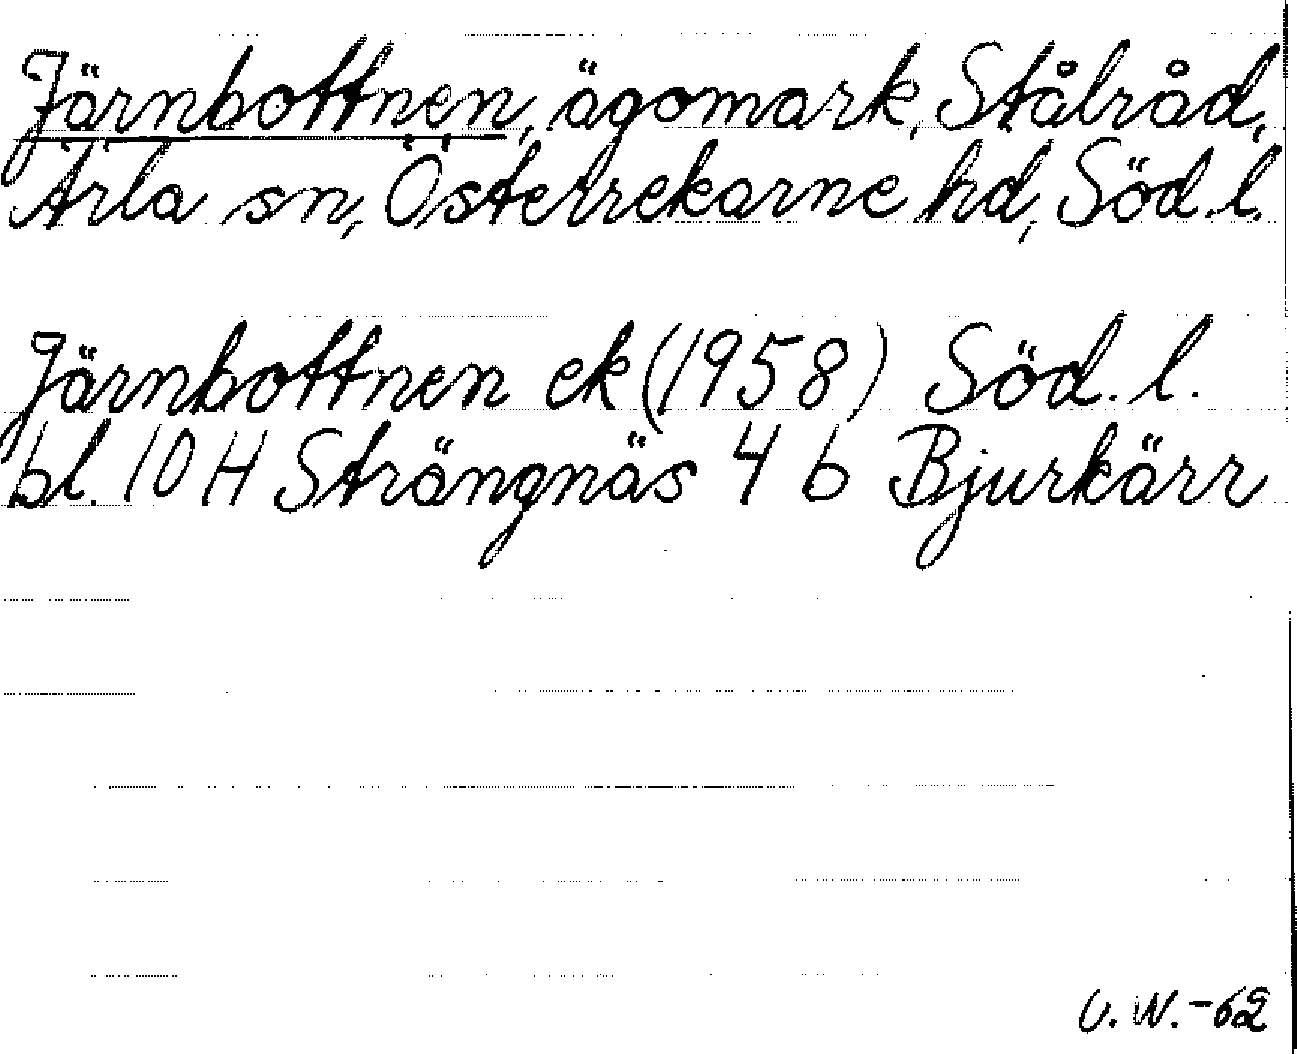 Järnbottnen, ägomark, Stålråd,
Ärla sn, Österrekarne hd, Söd.l.
Järnbottnen ek (1958) Söd. l.
bl. 10 H Strängnäs 4 b Bjurkärr
U. W. -62